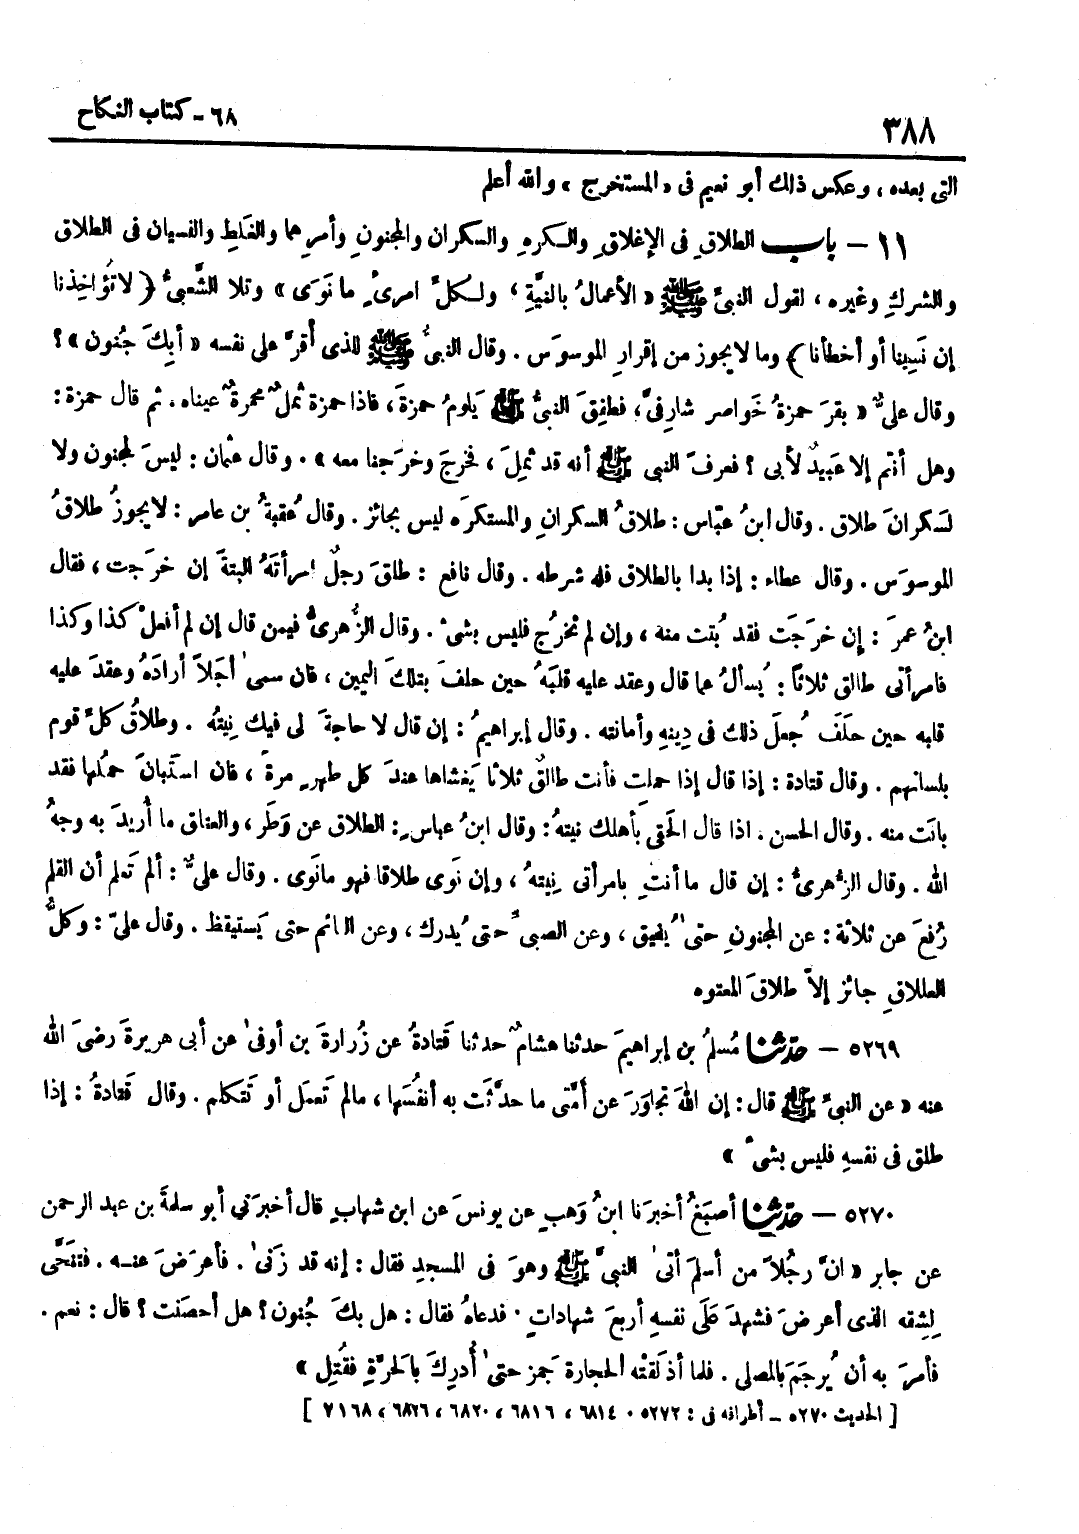 ٦٨ - كتاب النكاح
٣٨٨
التى بعده ، وعكس ذلك أبو نعيم فى « المستخرج » والله أعلم
١١ - باب الطلاقِ فى الإغلاقِ والكره والسكران والمجنونِ وأمرِهما والغَلطِ والنسيان فى الطلاق
والشركِ وغيره ، لقول النبىِّ ﷺ « الأعمالُ بالنيَّةِ ، ولكلِّ امرىءٍ ما نَوَى » وتلا الشَّعبىُّ ﴿ لا تُؤاخِذنا
إن نَسِينا أو أخطأنا ﴾ وما لا يجوز من إقرارِ الموسوَس . وقال النبىُّ ﷺ للذى أقرَّ على نفسه « أبِكَ جُنون » ؟
وقال علىٌّ « بقرَ حمزةُ خَواصر شارِفىَّ ، فطفِقَ النبىُّ ﷺ يَلومُ حمزةَ ، فاذا حمزة ثملٌ محمرةٌ عيناه . ثم قال حمزة :
وهل أنتم إلا عَبيدٌ لأبى ؟ فعرفَ النبى ﷺ أنه قد ثمِلَ ، فخرجَ وخرَجنا معه » . وقال عثمان : ليسَ لمجنون ولا
لسَكرانَ طلاق . وقال ابنُ عبّاس : طلاقُ السكرانِ والمستكرَه ليس بجائز . وقال عُقبةُ بن عامر : لا يجوزُ طلاقُ
الموسوَس . وقال عطاء : إذا بدا بالطلاق فله شرطه . وقال نافع : طلقَ رجلٌ امرأتَهُ البتةَ إن خرَجت ، فقال
ابنُ عمرَ : إن خرَجَت فقد بُتت منه ، وإن لم تخرُج فليس بشىء . وقال الزُّهرىُّ فيمن قال إن لم أفعلْ كذا وكذا
فامرأتى طالق ثلاثاً : يُسألُ عما قال وعقد عليه قلبَهُ حين حلفَ بتلكَ اليمين ، فان سمىٰ أجَلاً أرادَهُ وعقدَ عليه
قلبه حين حلَفَ جُعلَ ذلك فى دِينِهِ وأمانته . وقال إبراهيمُ : إن قال لا حاجةَ لى فيك نِيتُه . وطلاقُ كلِّ قوم
بلسانهم . وقال قتادة : إذا قال إذا حملت فأنت طالقٌ ثلاثا يَغشاها عندَ كل طهرٍ مرة ، فان استَبانَ حملها فقد
بانَت منه . وقال الحسن . اذا قال الحَقى بأهلك نيتهُ : وقال ابنُ عباسٍ : الطلاق عن وَطَر ، والعتاق ما أُريدَ به وجهُ
الله . وقال الزُّهرىُّ : إن قال ما أنتِ بامرأتى نِيتهُ ، وإن نَوى طلاقا فهو مانَوى . وقال علىٌّ : ألم تَعلم أن القلم
رُفعَ عن ثلاثة : عن المجنونِ حتىٰ يُفيق ، وعن الصبىِّ حتى يُدرك ، وعن النائم حتى يَستيقظ . وقال علىّ : وكلُّ
الطلاقِ جائز إلاّ طلاقَ المعتوه
٥٢٦٩ - حدّثنا مُسلمُ بن إبراهيمَ حدثنا هشامٌ حدثنا قَتادةُ عن زُرارةَ بن أوفىٰ عن أبى هريرةَ رضىَ الله
عنه « عن النبىِّ ﷺ قال : إن اللهَ تجاوَزَ عن أمَّتى ما حدَّثَت به أنفُسَها ، مالم تَعمَل أو تَتكلم . وقال قَتادةُ : إذا
طلق فى نفسهِ فليس بشىءٍ »
٥٢٧٠ - حدّثنا أصبَغُ أخبرَنا ابنُ وَهبٍ عن يونسَ عن ابن شهابٍ قال أخبرَني أبو سلمةَ بن عبد الرحمن
عن جابر « انَّ رجُلاً من أسلمَ أتىٰ النبىَّ ﷺ وهوَ فى المسجدِ فقال : إنه قد زَنىٰ . فأعرَضَ عنه . فتنَحَّى
لِشِقه الذى أعرضَ فشهدَ عَلَى نفسهِ أربعَ شهاداتٍ . فدعاهُ فقال : هل بكَ جُنون ؟ هل أحصَنت ؟ قال : نعم .
فأمرَ به أن يُرجَمَ بالمصلى . فلما أذلقتْه الحجارة جَمز حتىٰ أُدركَ بالحرَّةِ فقُتِل »
[ الحديث ٥٢٧٠ - أطرافه فى : ٥٢٧٢ ، ٦٨١٤ ، ٦٨١٦ ، ٦٨٢٠ ، ٦٨٢٦ ، ٧١٦٨ ]